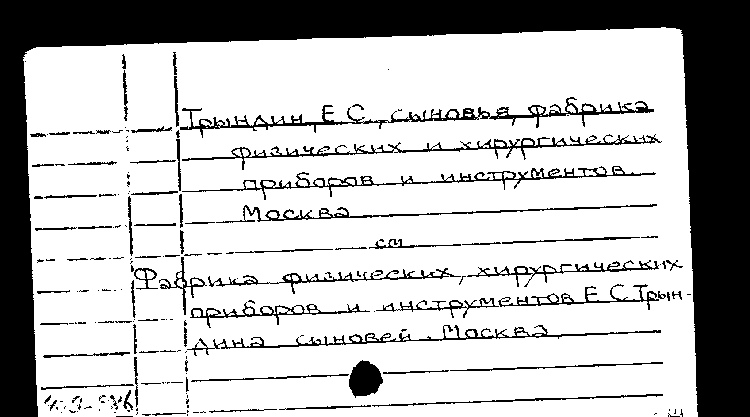 Трындин, Е. С., сыновья, фабрика
физических и хирургических
приборов и инструментов.
Москва
см.
Фабрика физических, хирургических
приборов и инструментов Е. С. Трын-
дина сыновей. Москва